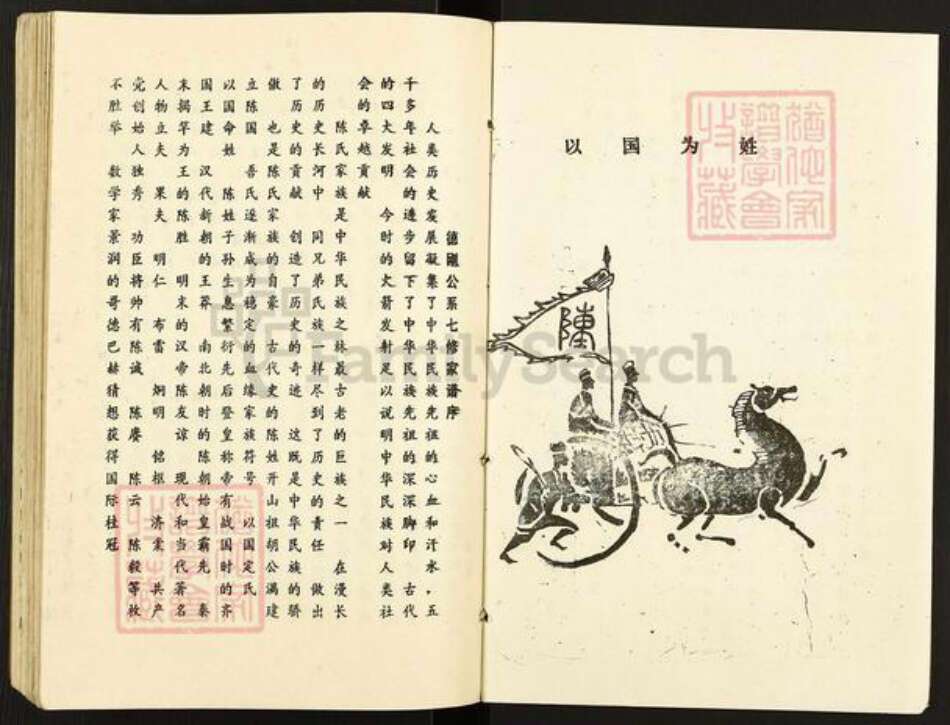 德刚公系七修家谱序
人类历史发展凝集了中华民族先祖的心血和汗水，五
千多年社会的进步留下了中华民族先祖的深深脚印 古代
的四大发明 今时的火箭发射足以说明中华民族对人类社
会的卓越贡献
陈氏家族是中华民族之脉最古老的巨族之一 在漫长
的历史长河中 同兄弟氏族一样尽到了历史的责任 做出
了历史的贡献 创造了历史的奇迹 这既是中华民族的骄
傲 也是陈氏家族的自豪 古代史的陈姓开山祖胡公满建
立陈国 吾氏逐渐成为稳定的血缘家族符号 以国定氏
以国命姓 陈姓子孙生息繁衍先后登皇称帝有战国时的齐
国王建 汉代新朝的王莽 南北朝时的陈朝始皇霸先 秦
末揭竿为王的陈胜 明末的汉帝陈友谅 现代和当代著名
人物立夫 果夫 明仁 布雷 炯明 铭枢 济棠 共产
党创始人独秀 功臣将帅有陈诚 陈赓 陈云 陈毅等枚
不胜举 数学家景润的哥德巴赫猜想获得国际桂冠
猶他家
譜學會
收藏
以国为姓
猶他家
譜學會
收藏
陳
FamilySearch